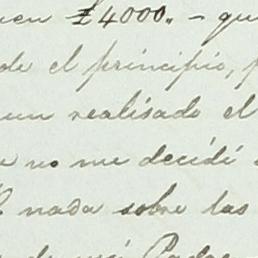 uen £4000. - qu
de el principio, p
un realisado el
e no me decidí
nada sobre las
de mis Padre